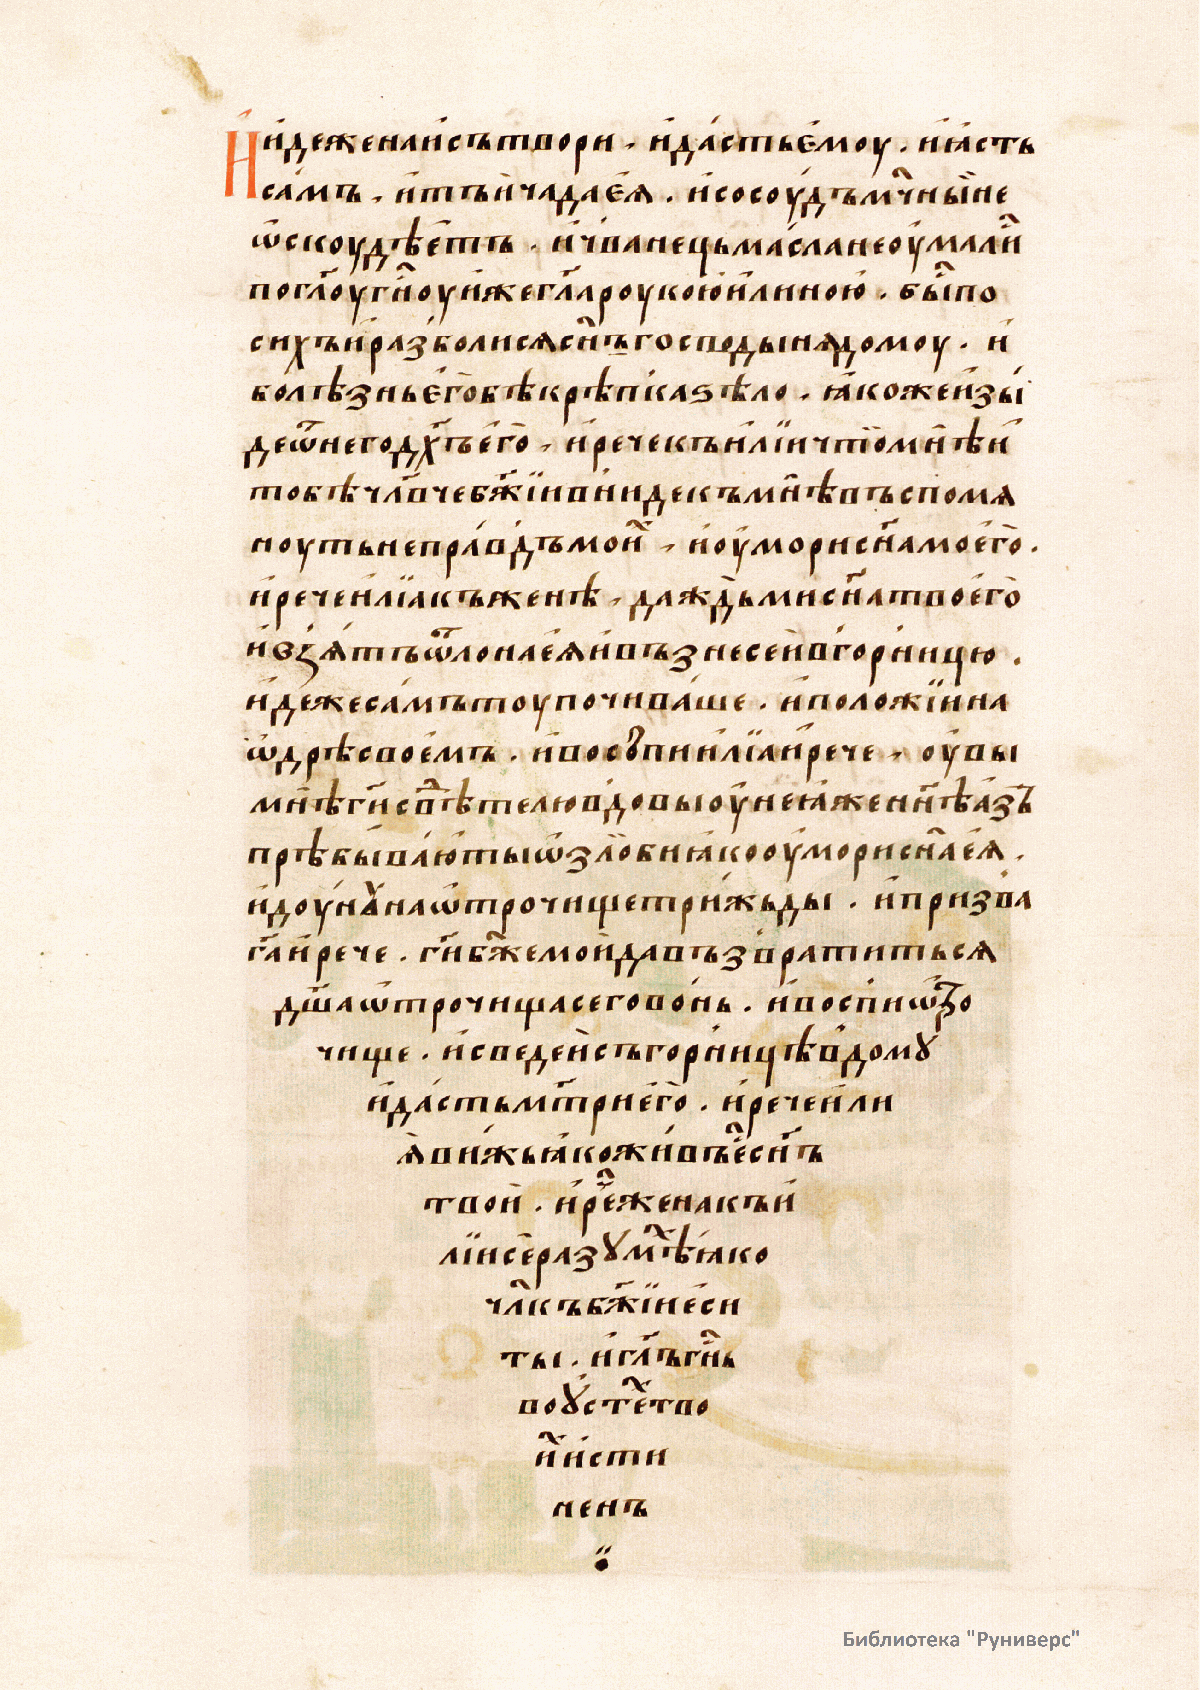 И҆ идеженаисътвори . и҆да́стьє҆моу . и҆ꙗ҆сть
са́мъ . и҆тъи҆чадаеꙗ . и҆сосоу́дъмꙋ́чныи҆не
ѡ҆скоудѣ́етъ . и҆ чва́нецьма́сланеоу҆мали̑
погл҃оугн҃оуи҆жегл҃ароукою҆и҆лииною . бы̑по
сихъи҆разболисѧсн҃ъгосподынѧдомоу . и҆
болѣзньє҆го̀бѣкрѣпказѣло . ꙗ҆кожеи҆зы́
деѿнегодх҃ъє҆го̀ . и҆речекъи҆лїичто̀мнѣи҆
тобѣчл҃вчебж҃їивнидекъмнѣвъспомѧ
ноутьнепра́вдъмои̑ . и҆оу҆морисн҃амоє҆го̀ .
и҆речеи҆лїакъженѣ . да́ждьмисн҃атвоє҆го̀
и҆взѧ́тъѿлонаеѧ҆и҆възнесеи҆вгорницю .
и҆дежеса́мътоупочива́ше . и҆положїина
ѡ҆дрѣсвоє҆мъ . и҆восꙋпиилїаи҆рече . оу҆вы
мнѣгн҃свѣ̑телювдовыоу҆неꙗ҆женнѣа҆зъ
прѣбыва́ю҆тыѡ҆зло̀биꙗ҆кооу҆морисн҃аеѧ҆ .
и҆доунꙋнаѡ҆трочищетри́жьды . и҆призва
га҃и҆рече . гн҃бж҃емои҆давъзвратитьсѧ
дш҃аѡ҆трочищасеговонь . и҆воспиѡ҆тро
чище . и҆сведеи҆съгорницѣвдомꙋ
и҆да́стьмт҃риє҆го̀ . и҆речеи҆ли
ѧ҆ви́жьꙗ҆кожи́въє҆̑сн҃ъ
твои҆ . и҆ре̑женакъи҆
лїисѐразꙋмѣ̑ꙗ҆ко
чл҃къбж҃їиє҆си
ты . и҆гл҃ъгн҃ь
воꙋстѐ̑тво
и̑и҆сти
ненъ